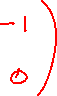 → 1 )
0